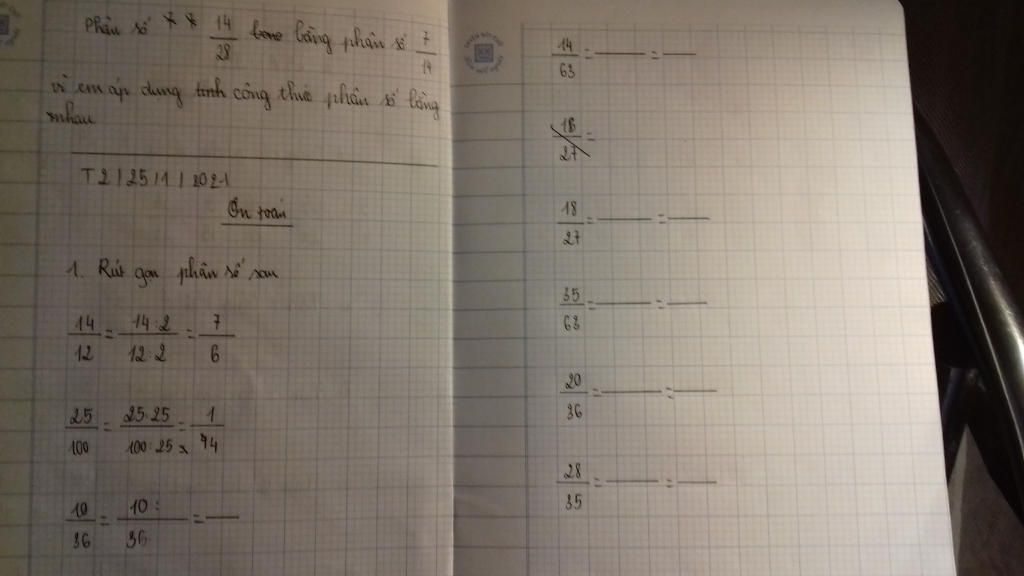 Phân số 14/28 bằng phân số 7/14
vì em áp dung tính công thức phân số bằng
nhau
T 2 | 25 | 1 | 2021
Ôn toán
1. Rút gọn phân số sau
14/12 = 14:2/12:2 = 7/6
25/100 = 25:25/100:25 = 1/4
10/36 = 10:/36 =
14/63 = =
18/27 =
18/27 = =
35/63 = =
20/36 = =
28/35 = =